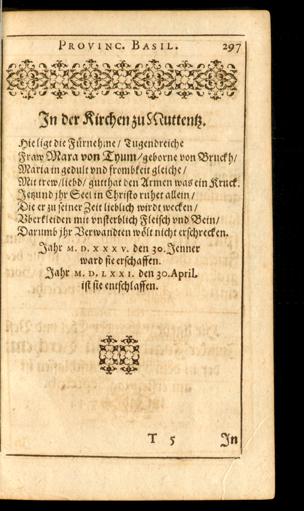 PROVINC. BASIL. 297
In der Kirchen zu Muttentz.
Hie ligt die Fürnehme/ Tugendreiche
Fraw Mara von Thum/ geborne von Bruckh/
Maria in gedult vnd frombkeit gleiche/
Mit trew/ liebd/ gutthat den Armen was ein Kruck.
Jetzund jhr Seel in Christo ruhet allein/
Die er zu seiner Zeit lieblich wirdt wecken/
Vberkleiden mit vnsterblich Fleisch vnd Bein/
Darumb jhr Verwandten wölt nicht erschrecken.
Jahr M. D. XXXV. den 30. Jenner
ward sie erschaffen.
Jahr M. D. LXXI. den 30. April.
ist sie entschlaffen.
T 5 In